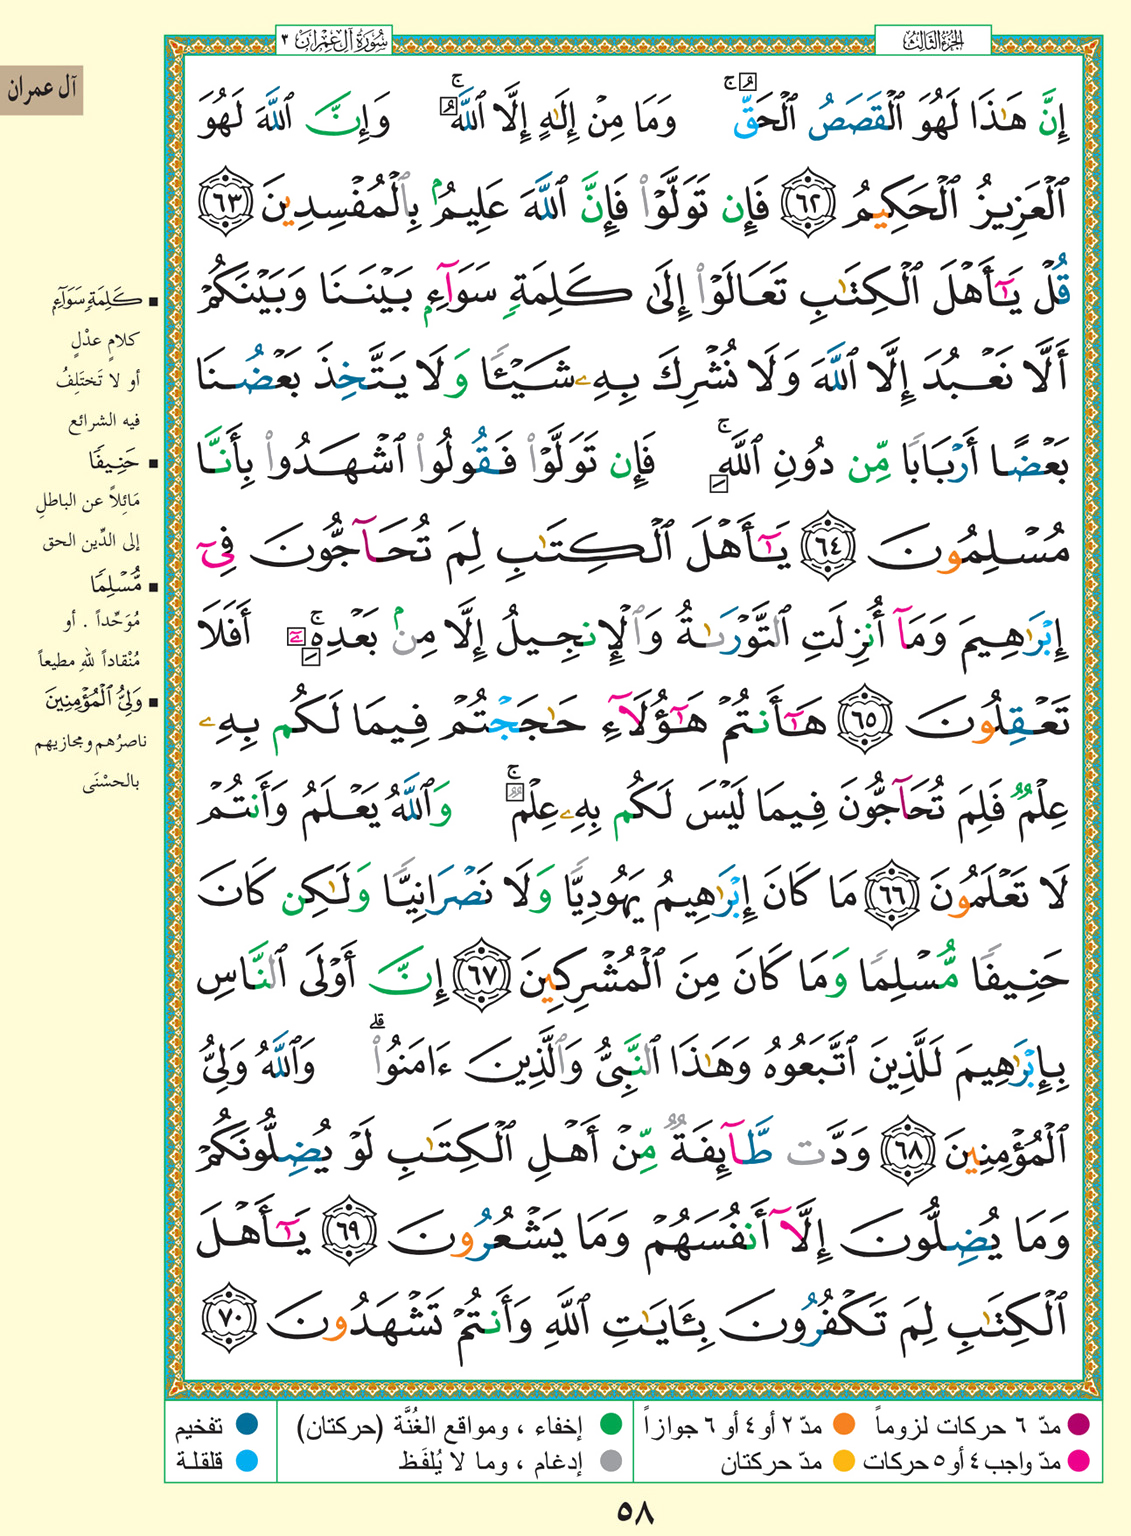 الجزء الثالث
سورة آل عمران ٣
آل عمران
إِنَّ هَٰذَا لَهُوَ ٱلْقَصَصُ ٱلْحَقُّ ۚ وَمَا مِنْ إِلَٰهٍ إِلَّا ٱللَّهُ ۚ وَإِنَّ ٱللَّهَ لَهُوَ
ٱلْعَزِيزُ ٱلْحَكِيمُ ٦٢ فَإِن تَوَلَّوْا۟ فَإِنَّ ٱللَّهَ عَلِيمٌۢ بِٱلْمُفْسِدِينَ ٦٣
قُلْ يَٰٓأَهْلَ ٱلْكِتَٰبِ تَعَالَوْا۟ إِلَىٰ كَلِمَةٍۢ سَوَآءٍۭ بَيْنَنَا وَبَيْنَكُمْ
أَلَّا نَعْبُدَ إِلَّا ٱللَّهَ وَلَا نُشْرِكَ بِهِۦ شَيْـًٔا وَلَا يَتَّخِذَ بَعْضُنَا
بَعْضًا أَرْبَابًا مِّن دُونِ ٱللَّهِ ۚ فَإِن تَوَلَّوْا۟ فَقُولُوا۟ ٱشْهَدُوا۟ بِأَنَّا
مُسْلِمُونَ ٦٤ يَٰٓأَهْلَ ٱلْكِتَٰبِ لِمَ تُحَآجُّونَ فِىٓ
إِبْرَٰهِيمَ وَمَآ أُنزِلَتِ ٱلتَّوْرَىٰةُ وَٱلْإِنجِيلُ إِلَّا مِنۢ بَعْدِهِۦٓ ۚ أَفَلَا
تَعْقِلُونَ ٦٥ هَٰٓأَنتُمْ هَٰٓؤُلَآءِ حَٰجَجْتُمْ فِيمَا لَكُم بِهِۦ
عِلْمٌ فَلِمَ تُحَآجُّونَ فِيمَا لَيْسَ لَكُم بِهِۦ عِلْمٌ ۚ وَٱللَّهُ يَعْلَمُ وَأَنتُمْ
لَا تَعْلَمُونَ ٦٦ مَا كَانَ إِبْرَٰهِيمُ يَهُودِيًّا وَلَا نَصْرَانِيًّا وَلَٰكِن كَانَ
حَنِيفًا مُّسْلِمًا وَمَا كَانَ مِنَ ٱلْمُشْرِكِينَ ٦٧ إِنَّ أَوْلَى ٱلنَّاسِ
بِإِبْرَٰهِيمَ لَلَّذِينَ ٱتَّبَعُوهُ وَهَٰذَا ٱلنَّبِىُّ وَٱلَّذِينَ ءَامَنُوا۟ ۗ وَٱللَّهُ وَلِىُّ
ٱلْمُؤْمِنِينَ ٦٨ وَدَّت طَّآئِفَةٌ مِّنْ أَهْلِ ٱلْكِتَٰبِ لَوْ يُضِلُّونَكُمْ
وَمَا يُضِلُّونَ إِلَّآ أَنفُسَهُمْ وَمَا يَشْعُرُونَ ٦٩ يَٰٓأَهْلَ
ٱلْكِتَٰبِ لِمَ تَكْفُرُونَ بِـَٔايَٰتِ ٱللَّهِ وَأَنتُمْ تَشْهَدُونَ ٧٠
▪ كَلِمَةٍ سَوَآءٍ
كلامٍ عدْلٍ
أو لا تَختَلِفُ
فيه الشرائع
▪ حَنِيفًا
مَائِلاً عن الباطلِ
إلى الدِّين الحق
▪ مُّسْلِمًا
مُوَحِّداً . أو
مُنْقاداً للهِ مطيعاً
▪ وَلِىُّ ٱلْمُؤْمِنِينَ
ناصرُهم ومجازيهم
بالحسْنَى
مدّ ٦ حركات لزوماً
مدّ ٢ أو ٤ أو ٦ جوازاً
إخفاء ، ومواقع الغُنَّة (حركتان)
تفخيم
مدّ واجب ٤ أو ٥ حركات
مدّ حركتان
إدغام ، وما لا يُلفَظ
قلقلة
٥٨